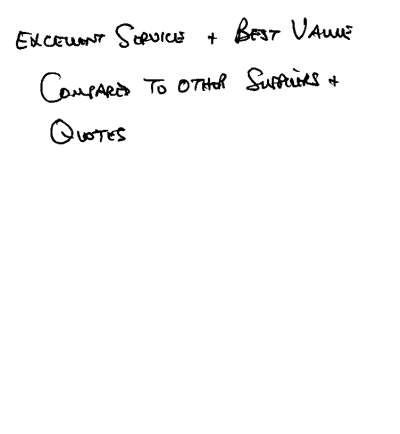 EXCELLENT SERVICE + BEST VALUE
COMPARED TO OTHER SUPPLIERS +
QUOTES